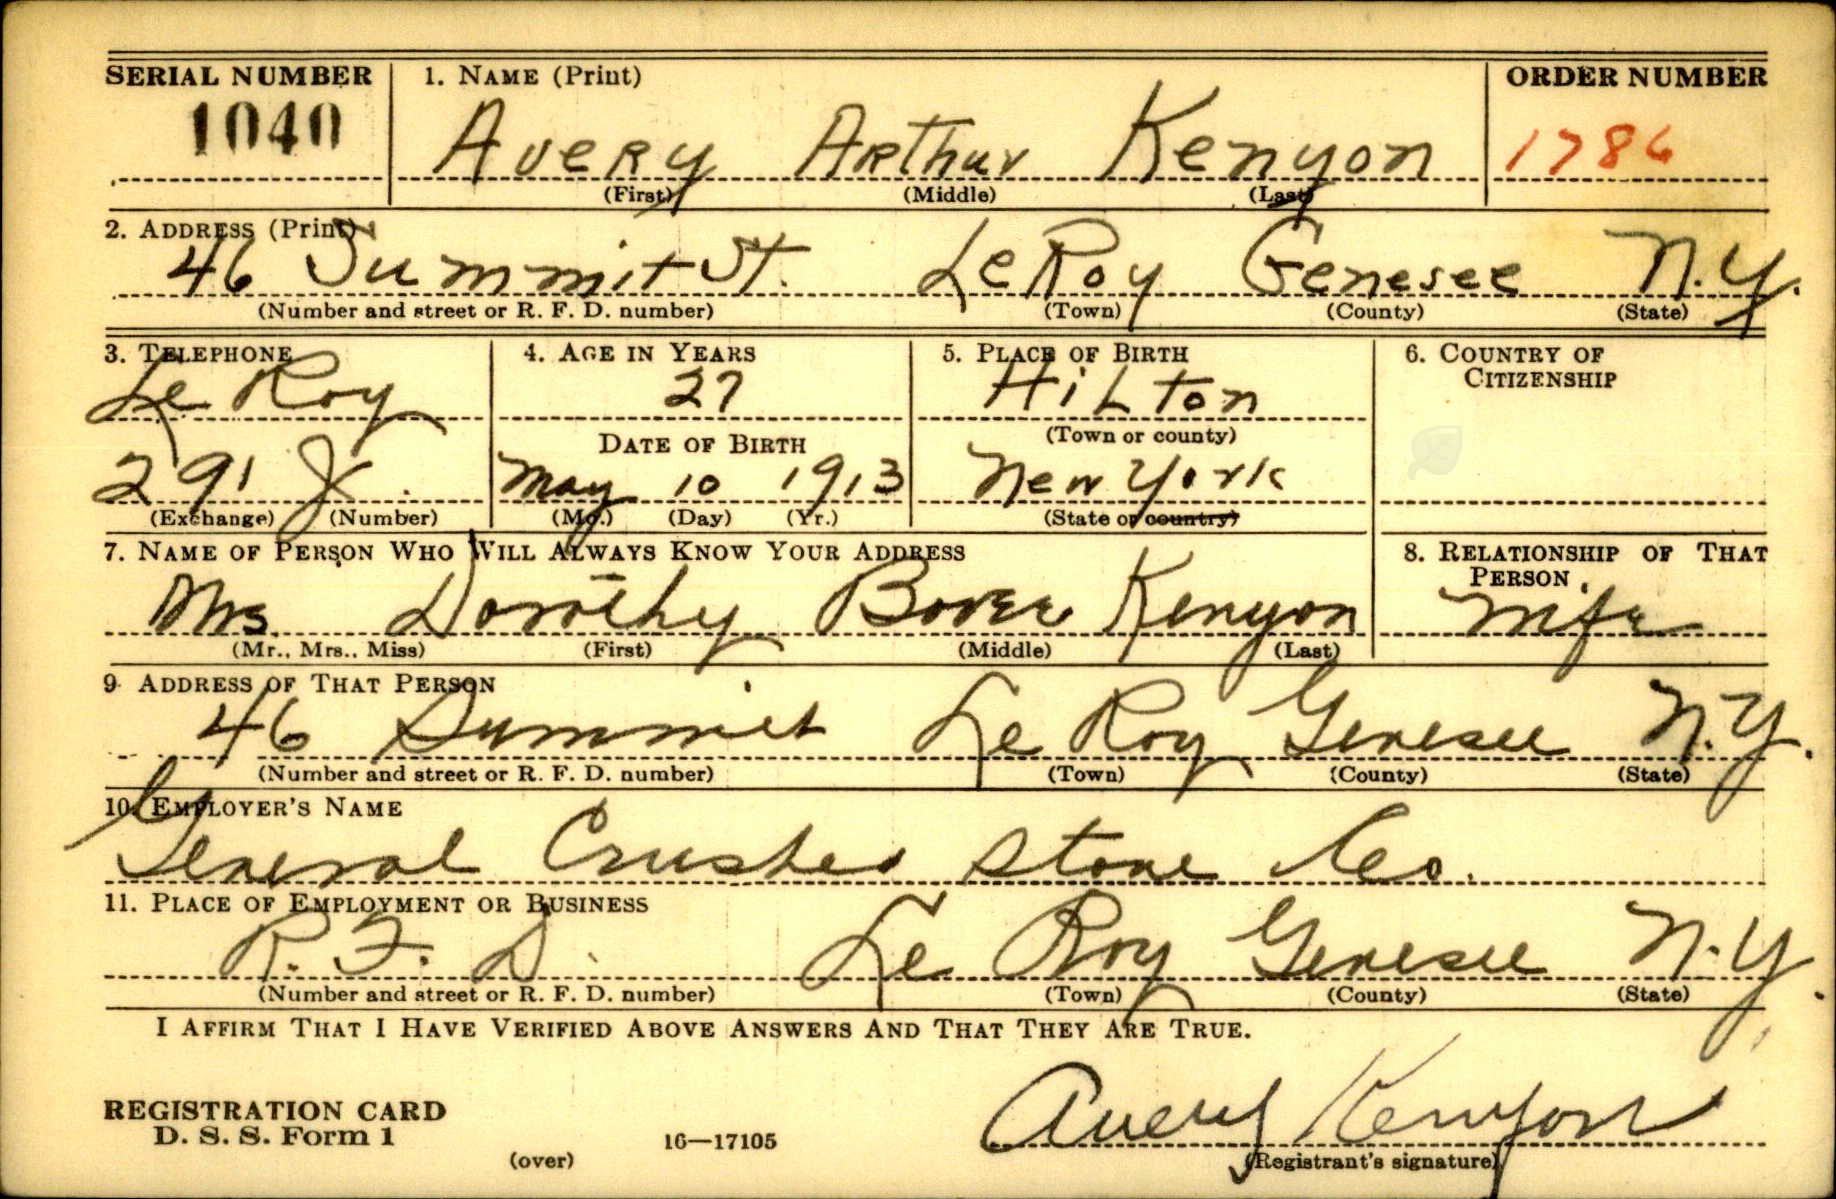 SERIAL NUMBER 1. NAME (Print) ORDER NUMBER
1040 Avery Arthur Kenyon 1786
(First) (Middle) (Last)
2. ADDRESS (Print)
46 Summit St. LeRoy Genesee N.Y.
(Number and street or R. F. D. number) (Town) (County) (State)
3. TELEPHONE 4. AGE IN YEARS 5. PLACE OF BIRTH 6. COUNTRY OF CITIZENSHIP
Le Roy 27 Hilton
DATE OF BIRTH (Town or county)
291 J. May 10 1913 New York
(Exchange) (Number) (Mo.) (Day) (Yr.) (State or country)
7. NAME OF PERSON WHO WILL ALWAYS KNOW YOUR ADDRESS 8. RELATIONSHIP OF THAT PERSON
Mrs. Dorothy Kenyon Wife
(Mr., Mrs., Miss) (First) (Middle) (Last)
9. ADDRESS OF THAT PERSON
46 Summit Le Roy Genesee N.Y.
(Number and street or R. F. D. number) (Town) (County) (State)
10. EMPLOYER'S NAME
General Crushed Stone Co.
11. PLACE OF EMPLOYMENT OR BUSINESS
R. F. D. Le Roy Genesee N.Y.
(Number and street or R. F. D. number) (Town) (County) (State)
I AFFIRM THAT I HAVE VERIFIED ABOVE ANSWERS AND THAT THEY ARE TRUE.
REGISTRATION CARD
D. S. S. Form 1 16—17105 Avery Kenyon
(over) (Registrant's signature)